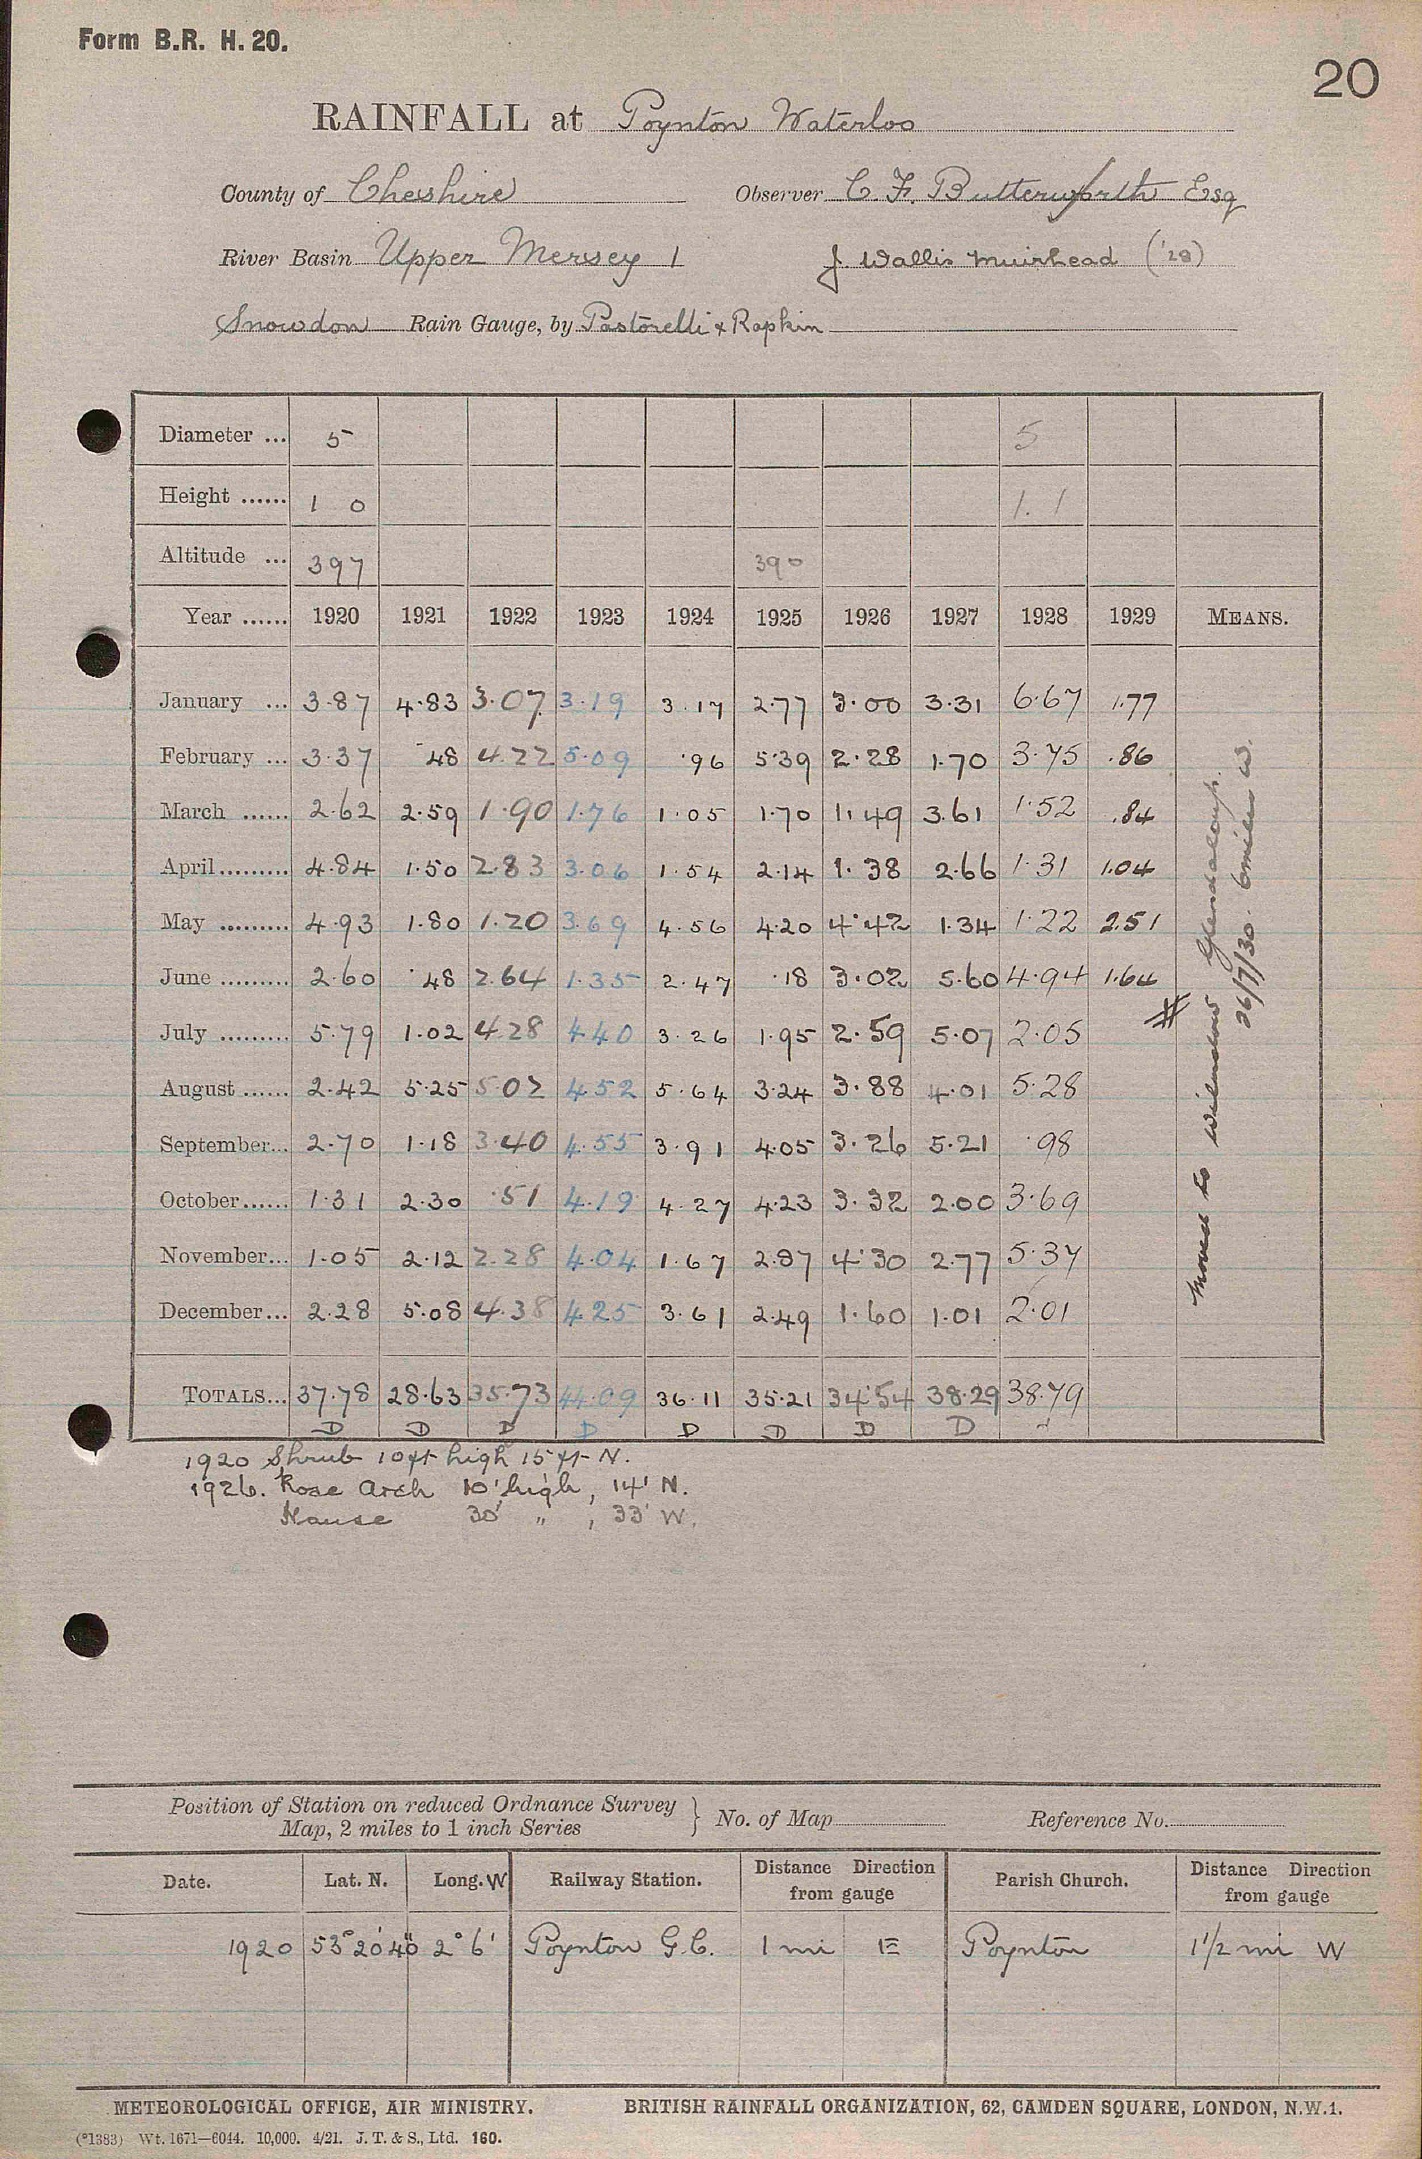 Form B.R. H. 20.
20
RAINFALL at Poynton Waterloo
County of Cheshire Observer C. F. Butterworth Esq
River Basin Upper Mersey 1 J. Wallis Muirhead ('28)
Snowdon Rain Gauge, by Pastorelli & Rapkin
Diameter ... 5 5
Height ...... 1 0 1.1
Altitude ... 397 390
Year ...... 1920 1921 1922 1923 1924 1925 1926 1927 1928 1929 MEANS.
January ... 3.87 4.83 3.07 3.19 3.17 2.77 3.00 3.31 6.67 1.77
February ... 3.37 .48 4.22 5.09 .96 5.39 2.28 1.70 3.75 .86
March ...... 2.62 2.59 1.90 1.76 1.05 1.70 1.49 3.61 1.52 .84
April......... 4.84 1.50 2.83 3.06 1.54 2.14 1.38 2.66 1.31 1.04
May ......... 4.93 1.80 1.20 3.69 4.56 4.20 4.42 1.34 1.22 2.51
June ......... 2.60 .48 2.64 1.35 2.47 .18 3.02 5.60 4.94 1.64
July ......... 5.79 1.02 4.28 4.40 3.26 1.95 2.59 5.07 2.05
August ...... 2.42 5.25 5.02 4.52 5.64 3.24 3.88 4.01 5.28
September... 2.70 1.18 3.40 4.55 3.91 4.05 3.26 5.21 .98
October...... 1.31 2.30 .51 4.19 4.27 4.23 3.32 2.00 3.69
November... 1.05 2.12 2.28 4.04 1.67 2.87 4.30 2.77 5.37
December... 2.28 5.08 4.38 4.25 3.61 2.49 1.60 1.01 2.01
TOTALS... 37.78 28.63 35.73 44.09 36.11 35.21 34.54 38.29 38.79
D D D D D D D D
# Moved to Wilmslow
26/7/30. 6 miles W.
1920 Shrub 10 ft high 15 ft N.
1926. Rose Arch 10' high, 14' N.
House 30' " , 33' W.
Position of Station on reduced Ordnance Survey
Map, 2 miles to 1 inch Series } No. of Map Reference No.
Date. Lat. N. Long. W Railway Station. Distance Direction from gauge Parish Church. Distance Direction from gauge
1920 53° 20' 40" 2° 6' Poynton G.C. 1 mi E Poynton 1 1/2 mi W
METEOROLOGICAL OFFICE, AIR MINISTRY. BRITISH RAINFALL ORGANIZATION, 62, CAMDEN SQUARE, LONDON, N.W.1.
(*1383) Wt. 1671—6044. 10,000. 4/21. J. T. & S., Ltd. 160.